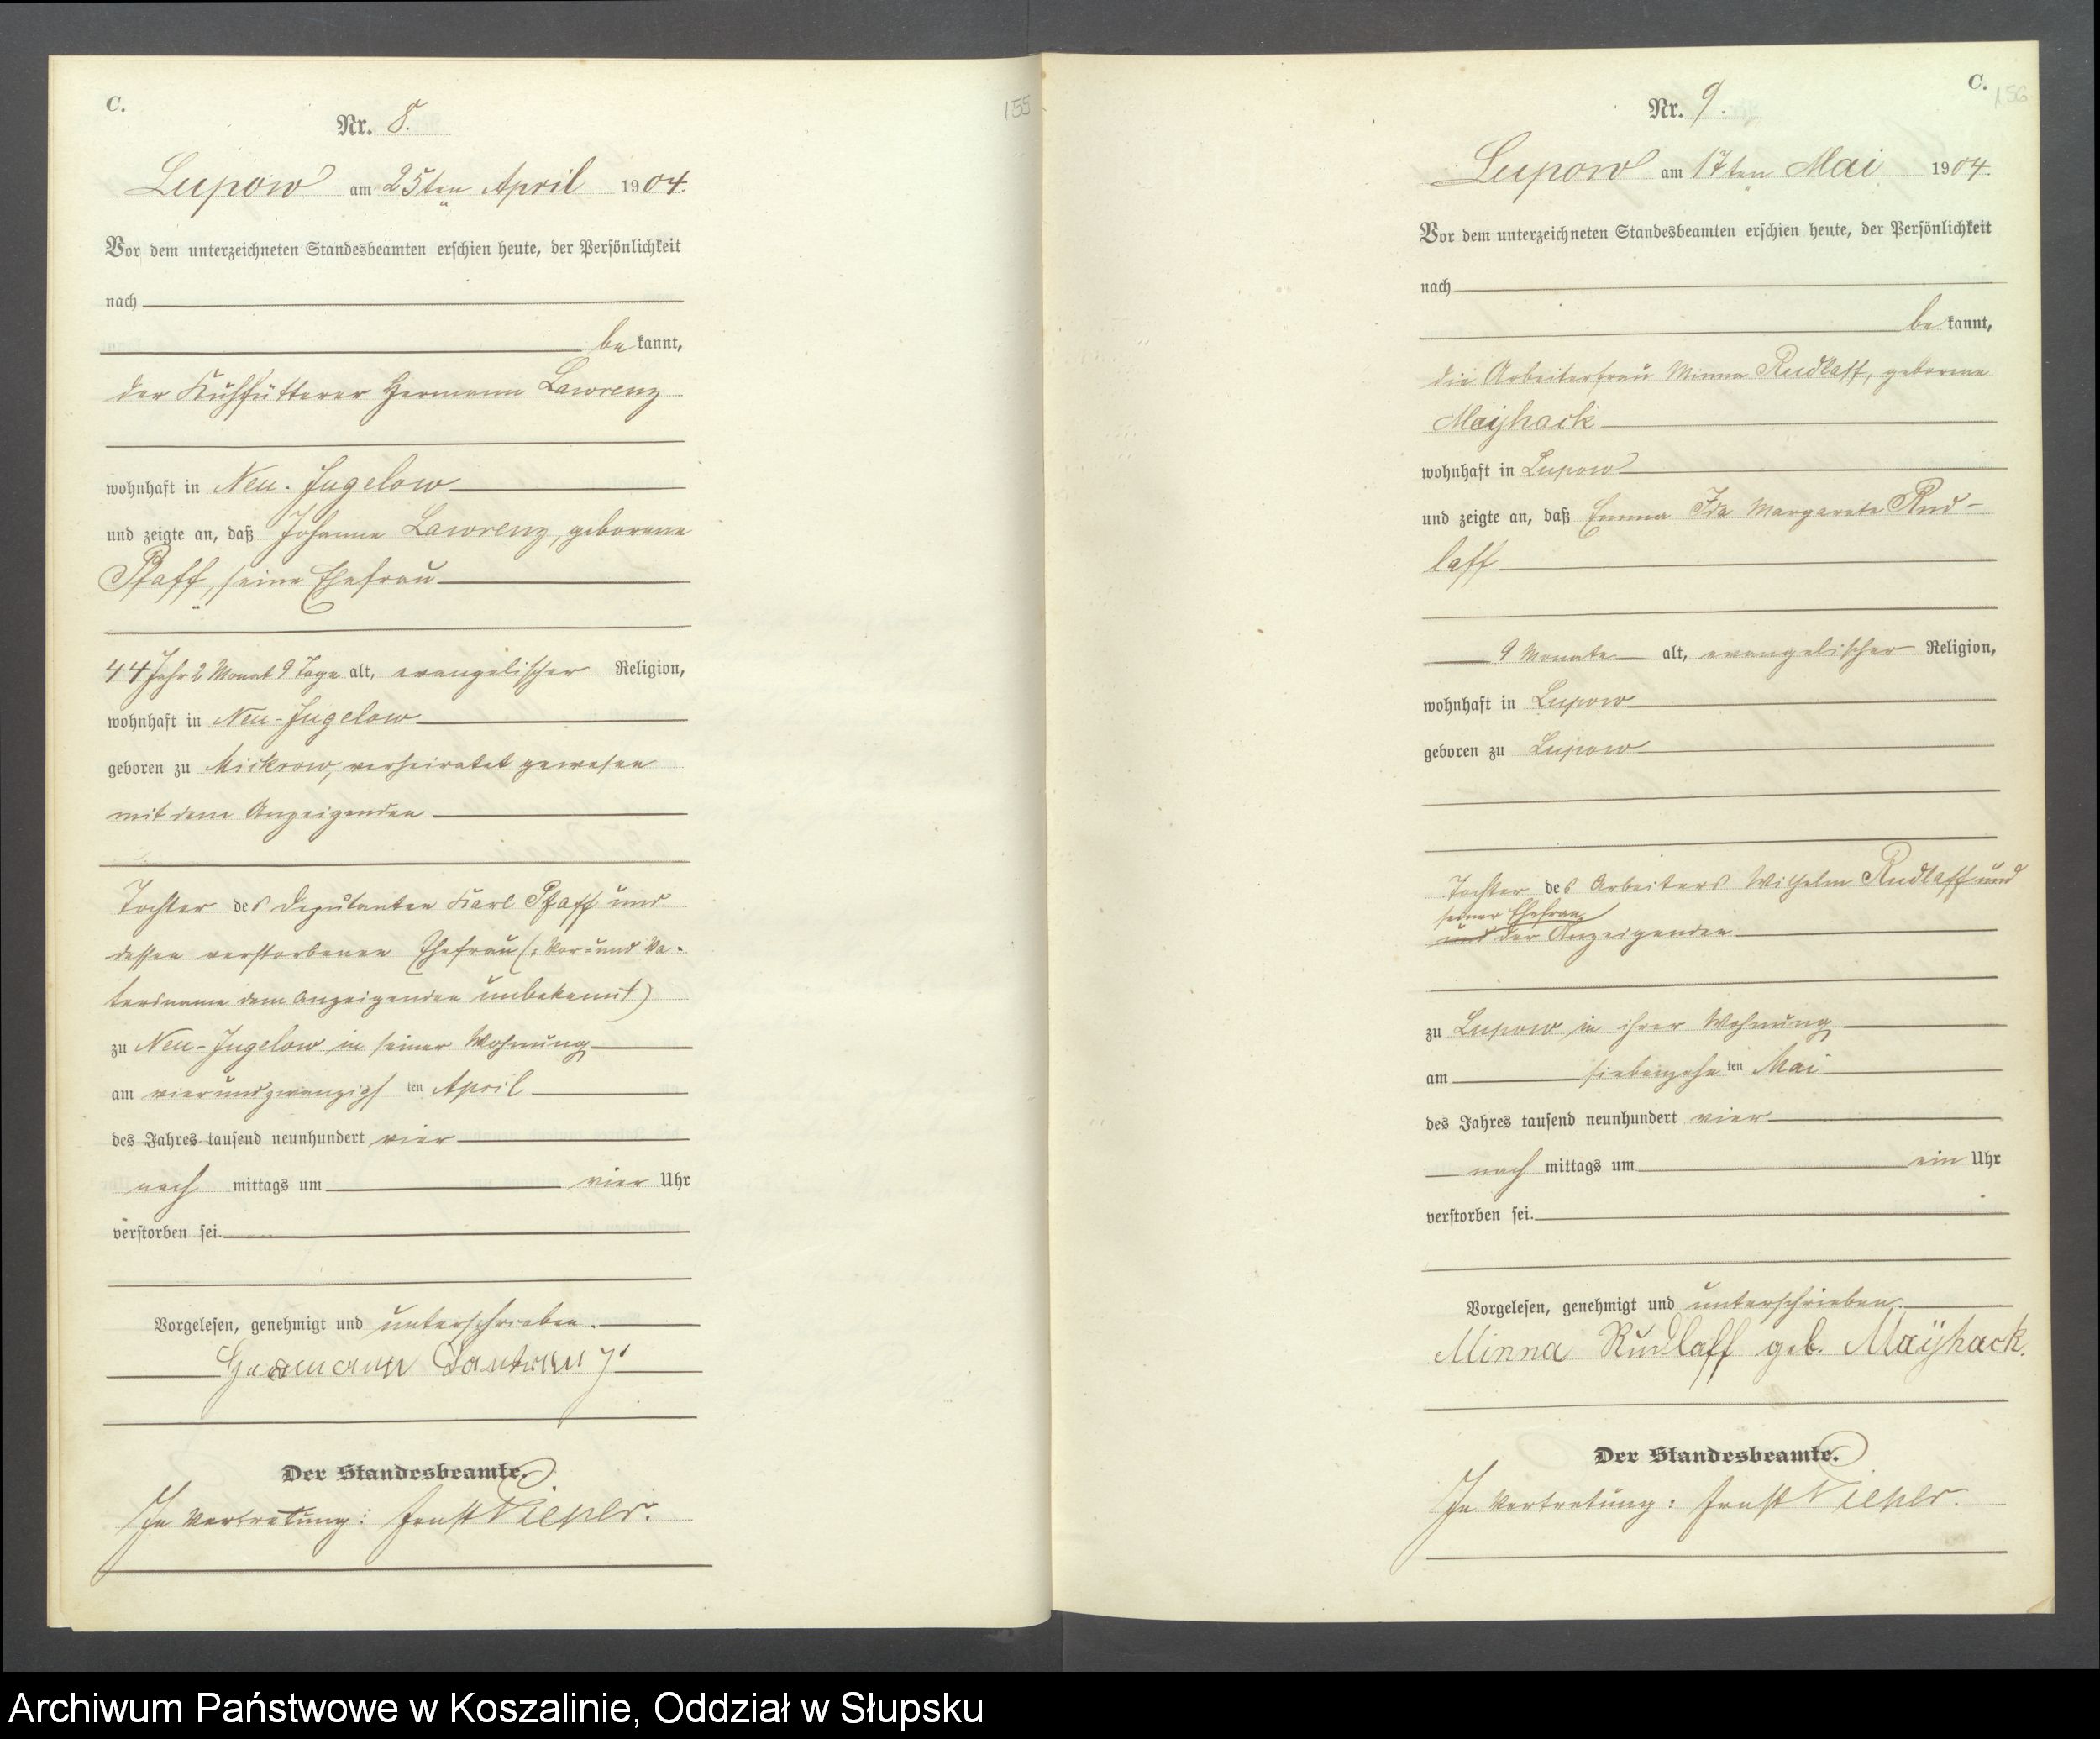 C.
Nr. 8.
155
Lupow am 25ten April 1904.
Vor dem unterzeichneten Standesbeamten erschien heute, der Persönlichkeit
nach
be kannt,
der Kuhfütterer Hermann Lawrenz
wohnhaft in Neu-Jugelow
und zeigte an, daß Johanne Lawrenz, geborene
Pfaff, seine Ehefrau
44 Jahr 2 Monat 9 Tage alt, evangelischer Religion,
wohnhaft in Neu-Jugelow
geboren zu Mickrow, verheiratet gewesen
mit dem Anzeigenden
Tochter des Deputanten Karl Pfaff und
dessen verstorbenen Ehefrau (: Vor- und Va-
tersname dem Anzeigenden unbekannt)
zu Neu-Jugelow in seiner Wohnung
am vierundzwanzigsten April
des Jahres tausend neunhundert vier
nach mittags um vier Uhr
verstorben sei.
Vorgelesen, genehmigt und unterschrieben.
Der Standesbeamte.
In Vertretung: Ernst Pieper.
C.
156
Nr. 9.
Lupow am 17ten Mai 1904.
Vor dem unterzeichneten Standesbeamten erschien heute, der Persönlichkeit
nach
be kannt,
die Arbeiterfrau Minna Rudlaff, geborene
Mayhack
wohnhaft in Lupow
und zeigte an, daß Emma Ida Margarete Rud-
laff
9 Monate alt, evangelischer Religion,
wohnhaft in Lupow
geboren zu Lupow
Tochter des Arbeiters Wilhelm Rudlaff und
seiner Ehefrau
und der Anzeigenden
zu Lupow in ihrer Wohnung
am siebenzehnten Mai
des Jahres tausend neunhundert vier
nach mittags um ein Uhr
verstorben sei.
Vorgelesen, genehmigt und unterschrieben.
Minna Rudlaff geb. Maÿhack.
Der Standesbeamte.
In Vertretung: Ernst Pieper.
Archiwum Państwowe w Koszalinie, Oddział w Słupsku